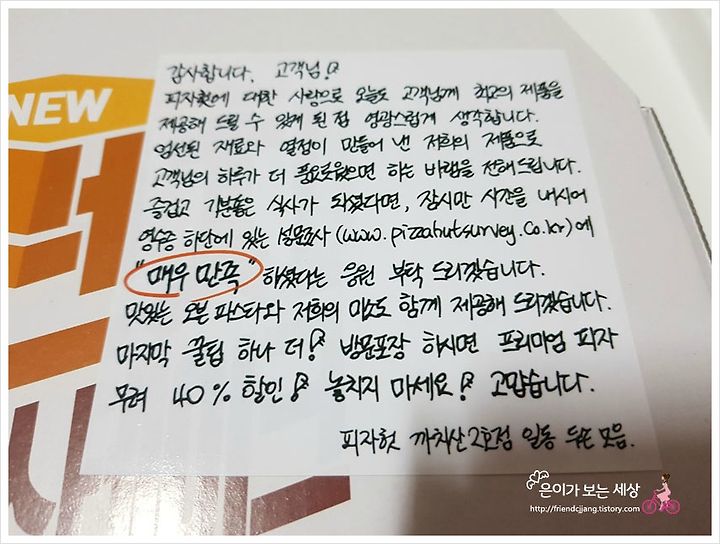 NEW
감사합니다. 고객님!
피자헛에 대한 사랑으로 오늘도 고객님께 최고의 제품을
제공해 드릴 수 있게 된 점 영광스럽게 생각합니다.
엄선된 재료와 열정이 만들어 낸 저희의 제품으로
고객님의 하루가 더 풍요로웠으면 하는 바램을 전해드립니다.
즐겁고 기분좋은 식사가 되셨다면, 잠시만 시간을 내시어
영수증 하단에 있는 설문조사 (www.pizzahutsurvey.co.kr)에
"매우 만족" 하셨다는 응원 부탁 드리겠습니다.
맛있는 오븐 파스타와 저희의 미소도 함께 제공해 드리겠습니다.
마지막 꿀팁 하나 더! 방문포장 하시면 프리미엄 피자
무려 40% 할인! 놓치지 마세요! 고맙습니다.
피자헛 까치산2호점 일동 두손 모음.
은이가 보는 세상
http://friendcjjang.tistory.com